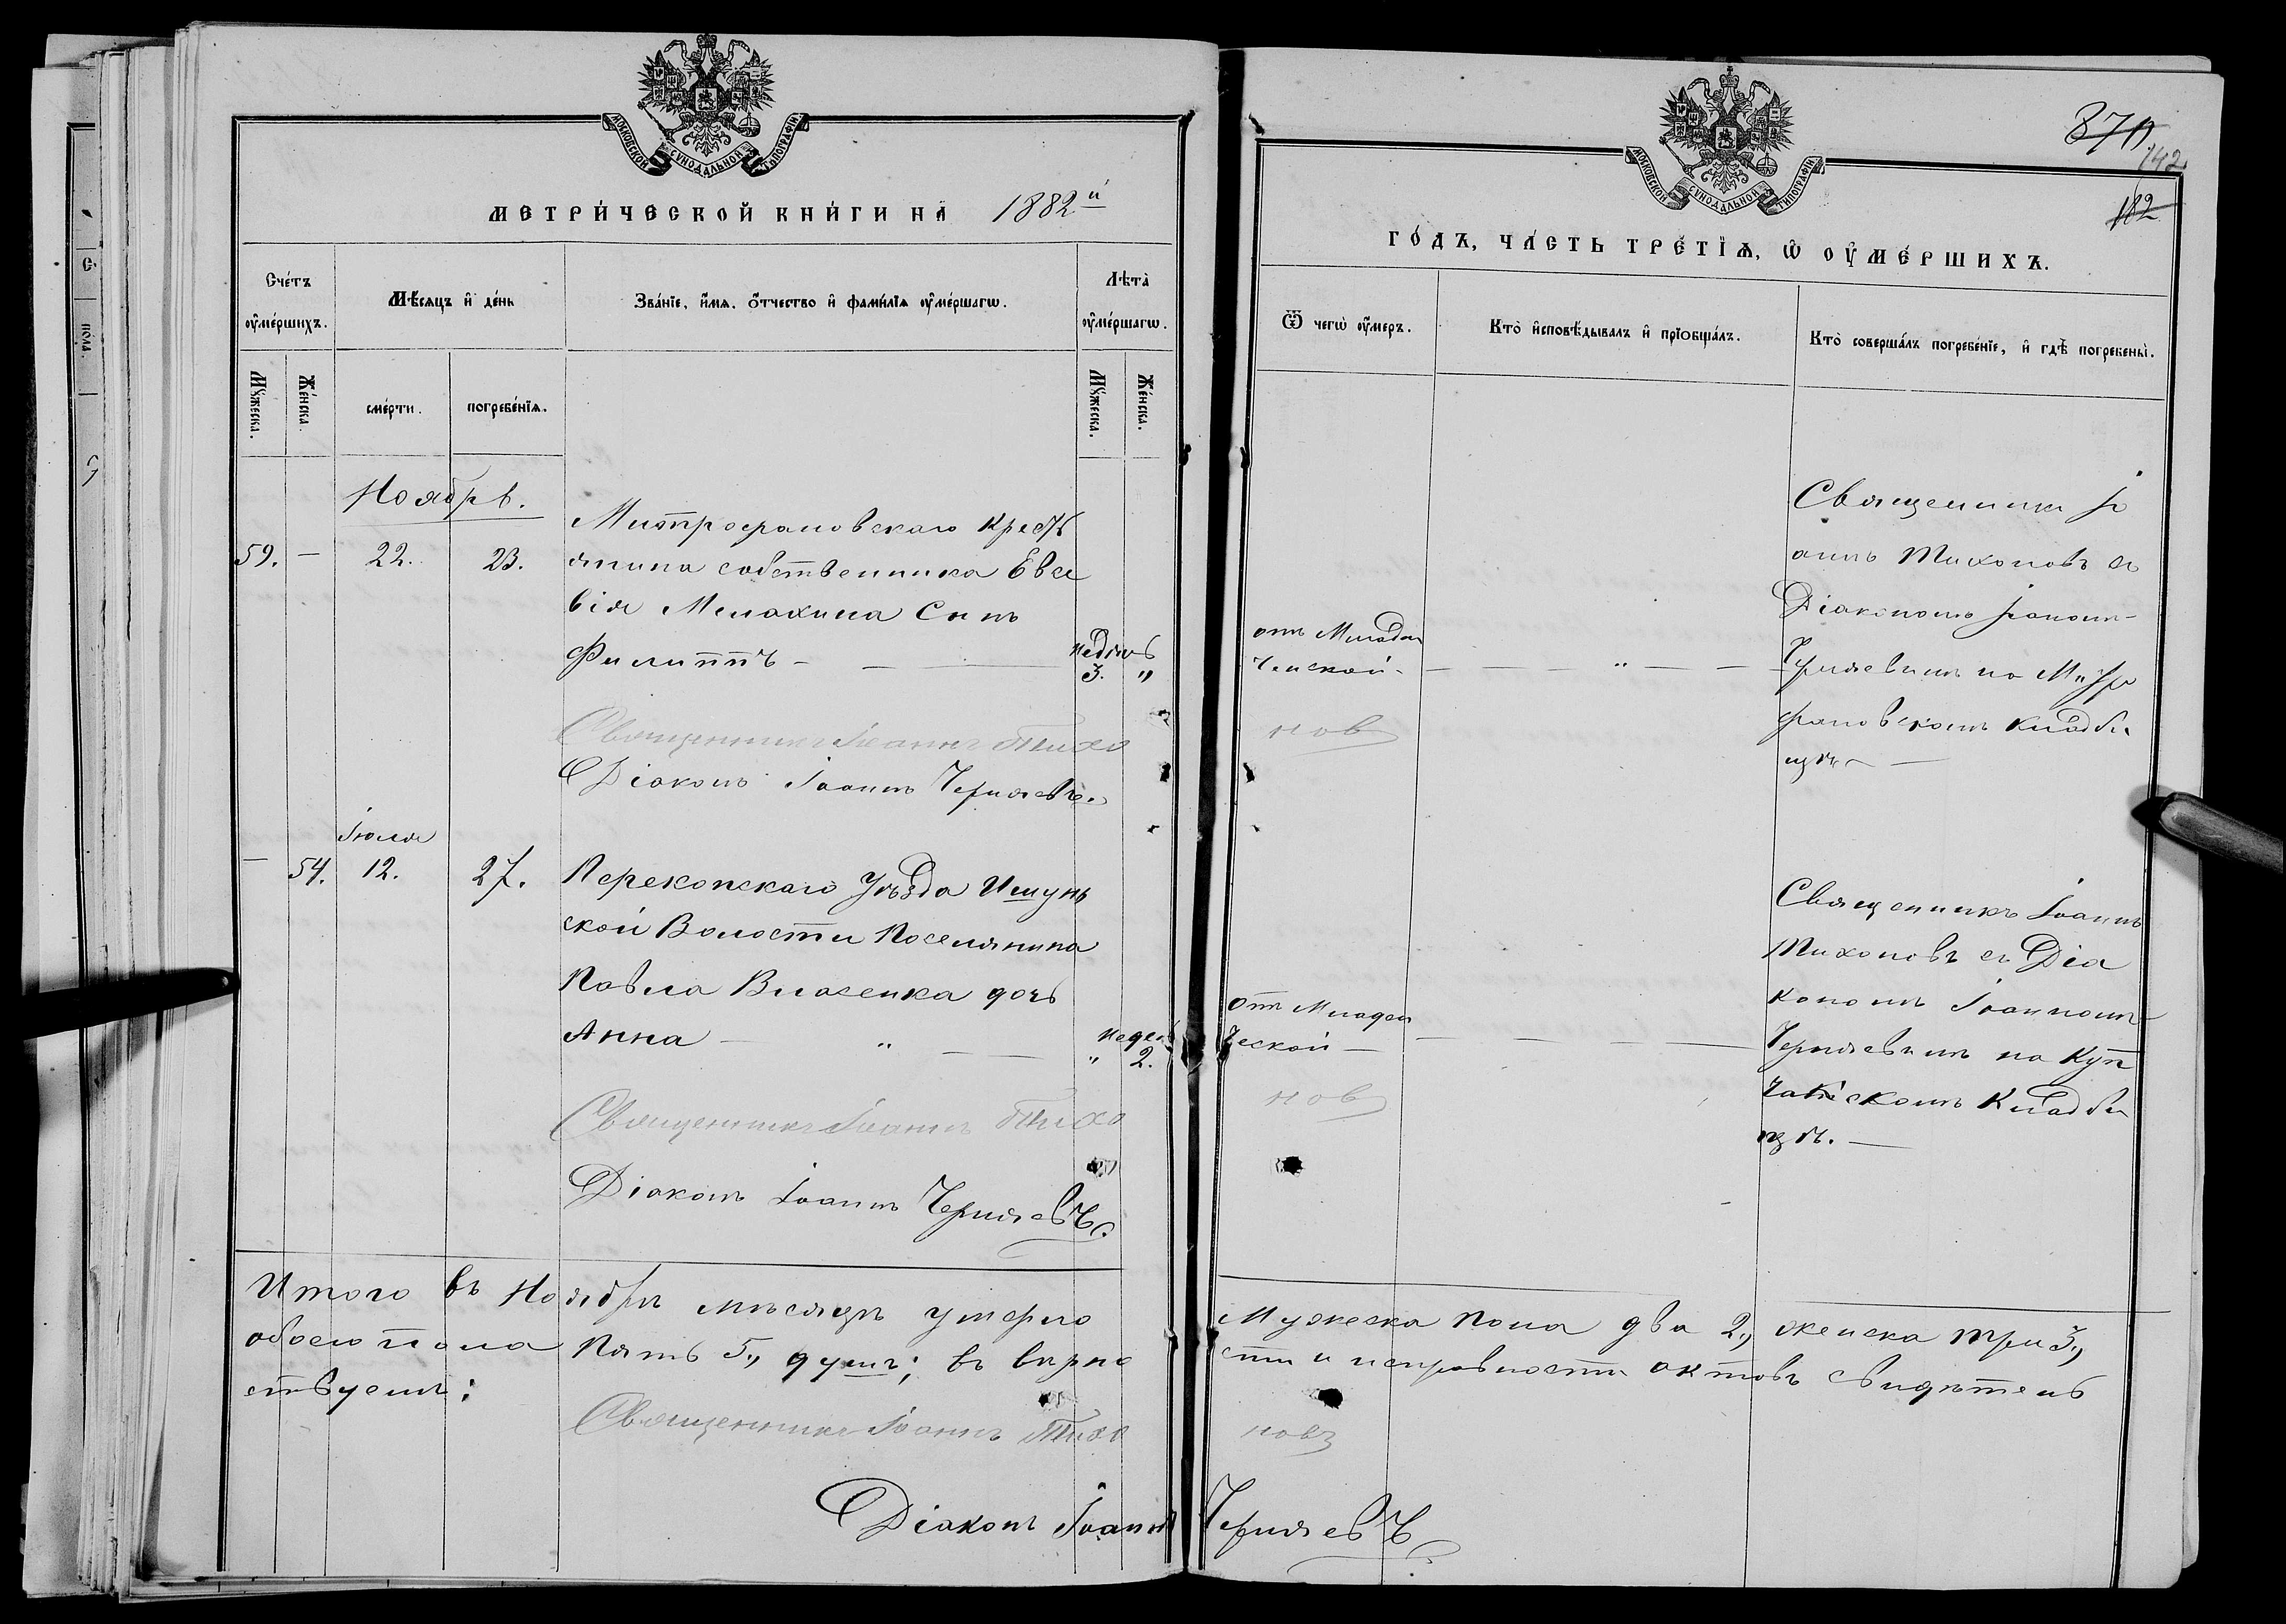 МОСКОВСКОЙ СУНОДАЛЬНОЙ ТИПОГРАФІИ
МЕТРИЧЕСКОЙ КНИГИ НА 1882 й
Счетъ оумершихъ.
Мѣсяцъ и день
Званіе, имя, отчество и фамилія оумершагѡ.
Лѣта оумершагѡ.
Мꙋжеска.
Женска.
смерти.
погребенія.
Мꙋжеска.
Женска.
Ноябрь.
59. — 22. 23.
Митрофановскаго Кресть
янина собственника Евсе
вія Малахина Сынъ
Филиппъ —
недѣль
3. "
Священникъ Іоаннъ Тихо
Діаконъ Іоаннъ Черняевъ.
Іюля
— 54. 12. 27.
Перекопскаго Уѣзда Ишунь
ской Волости Поселянина
Павла Власенка дочь
Анна — " —
недель
" 2.
Священникъ Іоаннъ Тихо
Діаконъ Іоаннъ Черняевъ.
Итого въ Ноябрѣ мѣсяцѣ умерло
обоего пола Пять 5,, душъ; въ вѣрно
ствуемъ:
Священникъ Іоаннъ Тихо
Діаконъ Іоаннъ
МОСКОВСКОЙ СУНОДАЛЬНОЙ ТИПОГРАФІИ
370
142
182
ГОДЪ, ЧАСТЬ ТРЕТІЯ, Ѡ ОУМЕРШИХЪ.
Ѿ чегѡ оумеръ.
Кто исповѣдывалъ и пріобщалъ.
Кто совершалъ погребеніе, и гдѣ погребены.
отъ Младен
ческой.
— " —
Священникъ Іо
аннъ Тихоновъ съ
Діакономъ Іоанномъ
Черняевымъ на Митро
фановскомъ Кладби
щѣ —
нов
отъ Младен
ческой —
Священникъ Іоаннъ
Тихоновъ съ Діа
кономъ Іоанномъ
Черняевымъ на Куп
скомъ Кладби
щѣ. —
нов
Мужеска пола два 2,, женска три 3,,
сти и исправности актовъ свидѣтель
новъ
Черняевъ